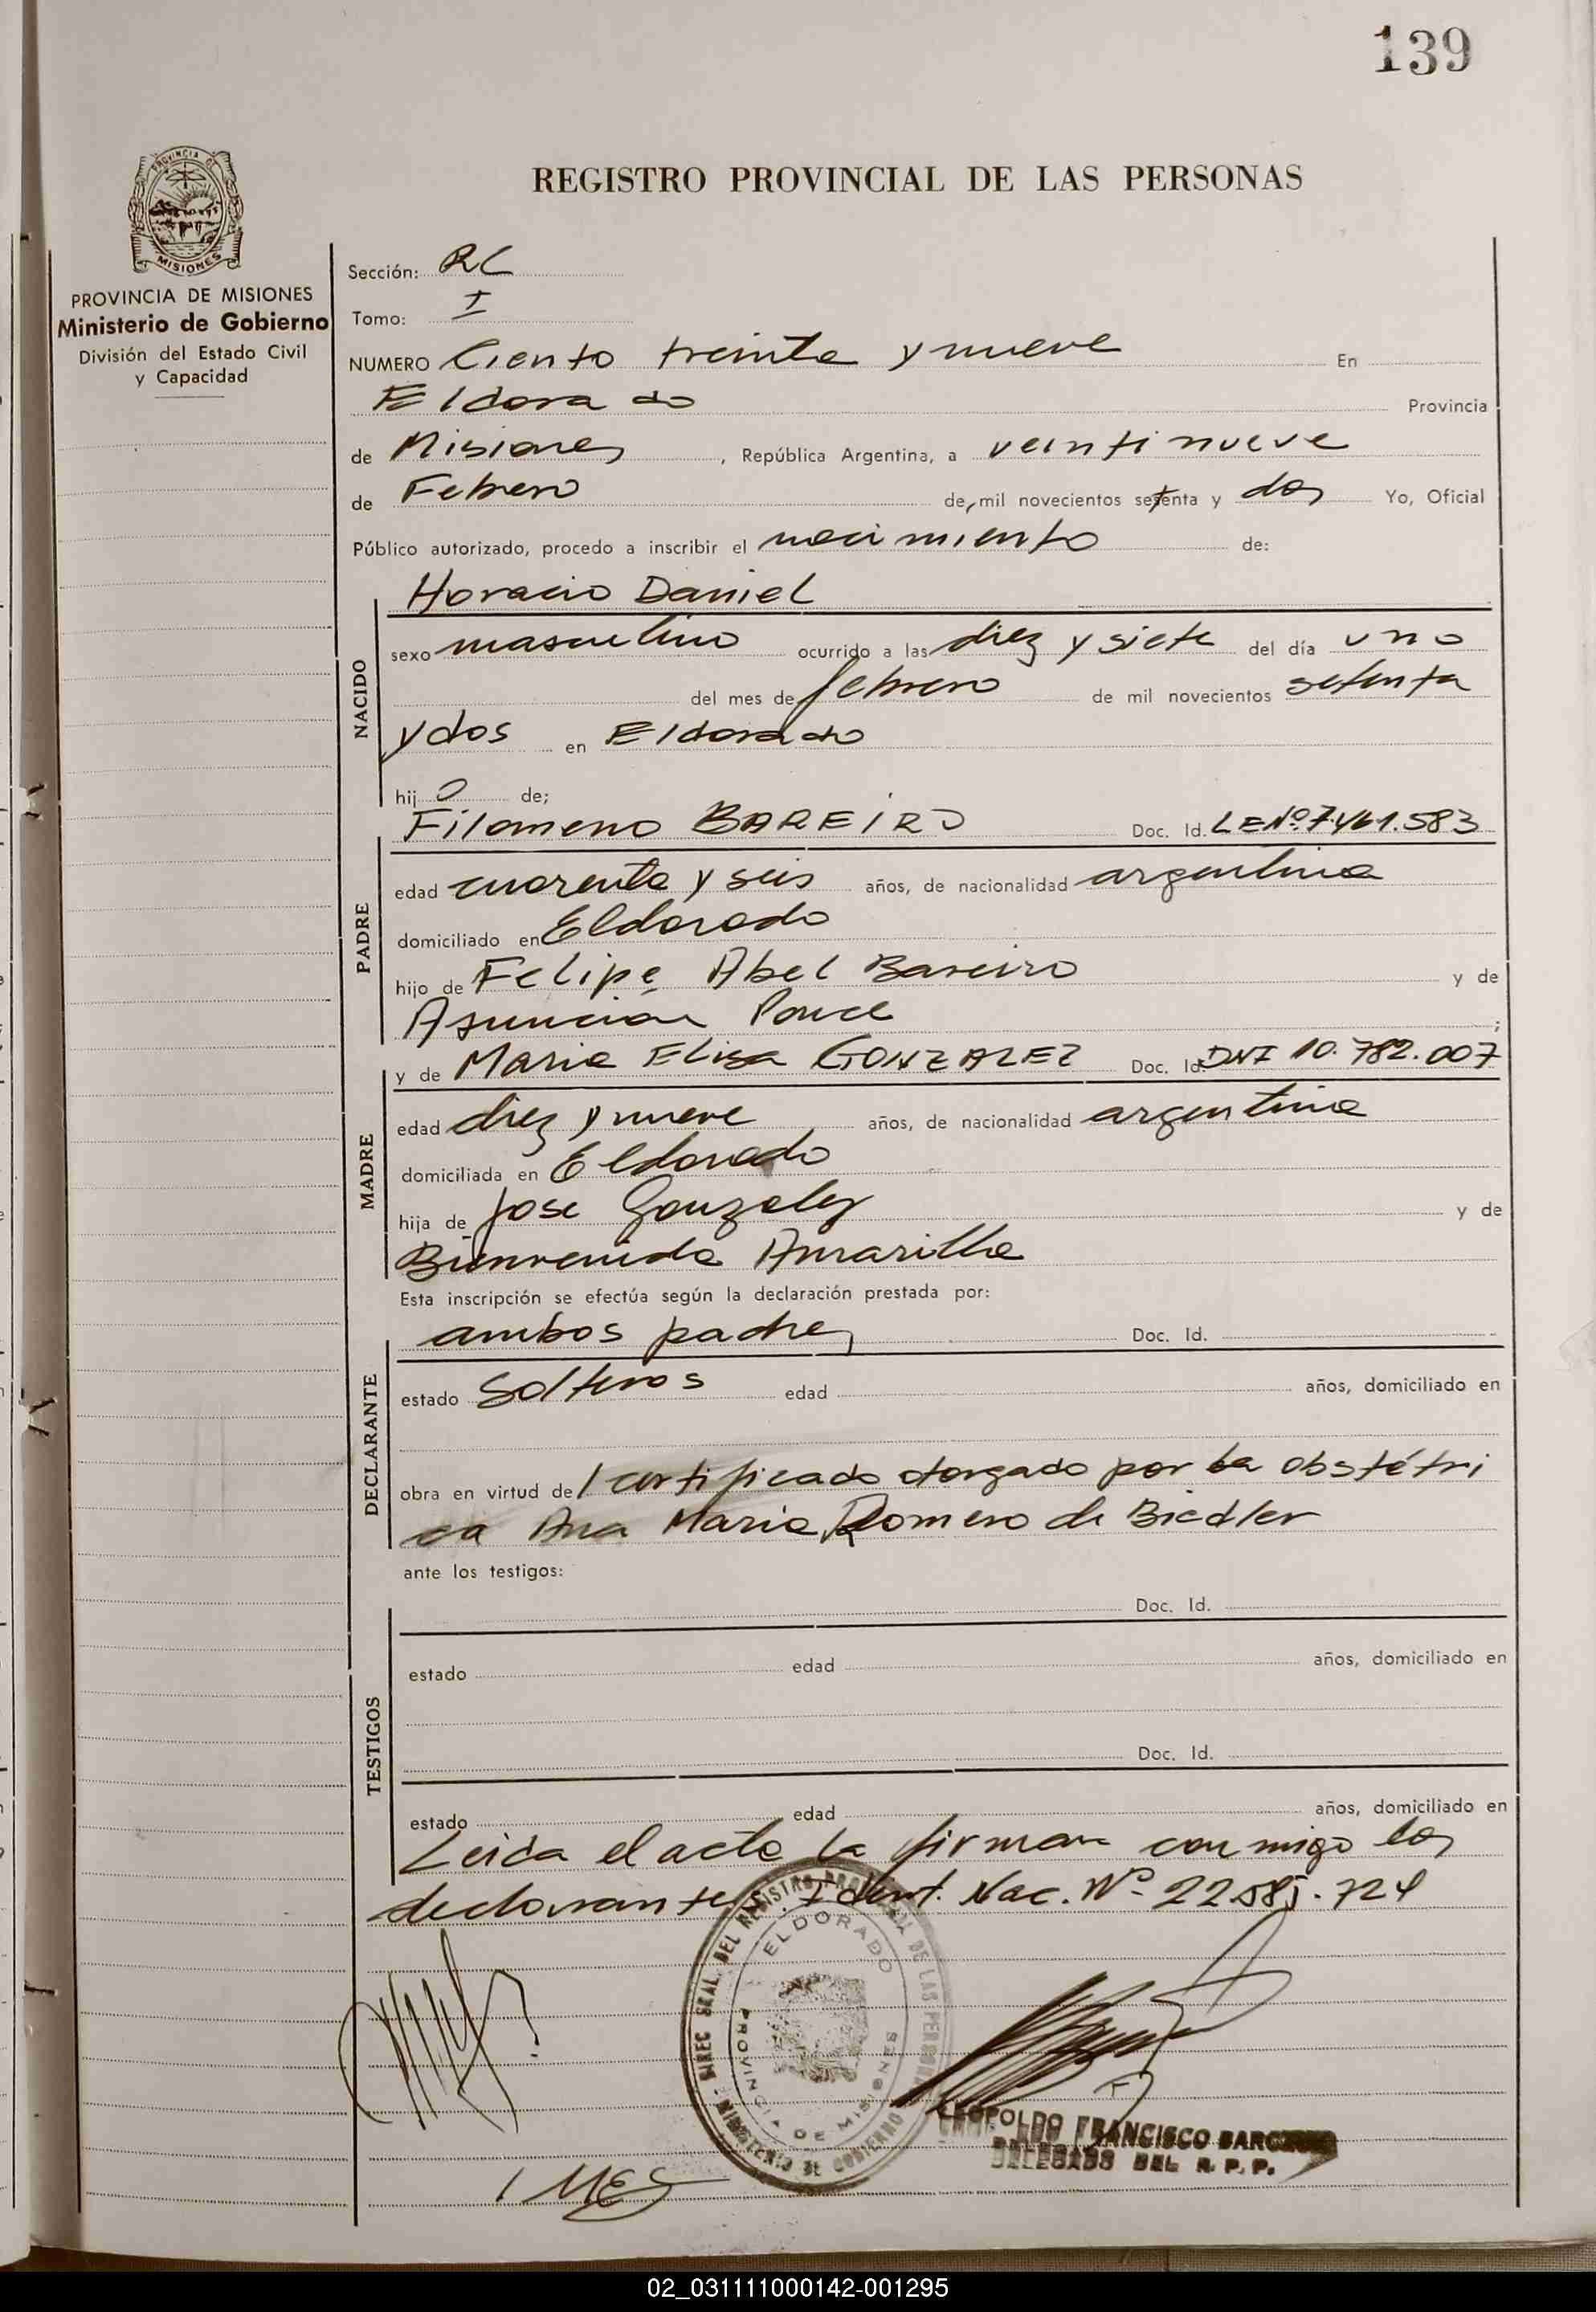 139
REGISTRO PROVINCIAL DE LAS PERSONAS
PROVINCIA DE
MISIONES
PROVINCIA DE MISIONES
Ministerio de Gobierno
División del Estado Civil
y Capacidad
Sección: RC
Tomo: I
NUMERO Ciento treinta y nueve En
Eldorado Provincia
de Misiones, República Argentina, a veintinueve
de Febrero de mil novecientos setenta y dos Yo, Oficial
Público autorizado, procedo a inscribir el nacimiento de:
Horacio Daniel
NACIDO
sexo masculino ocurrido a las diez y siete del día uno
del mes de febrero de mil novecientos setenta
y dos en Eldorado
hij o de;
Filomeno BAREIRO Doc. Id. LE Nº 7.461.583
PADRE
edad cuarenta y seis años, de nacionalidad argentina
domiciliado en Eldorado
hijo de Felipe Abel Bareiro y de
Asunción Ponce ;
y de Maria Elisa GONZALEZ Doc. Id. DNI 10.782.007
MADRE
edad diez y nueve años, de nacionalidad argentina
domiciliada en Eldorado
hija de Jose Gonzalez y de
Bienvenida Amarilla
Esta inscripción se efectúa según la declaración prestada por:
ambos padres Doc. Id.
DECLARANTE
estado Solteros edad años, domiciliado en
obra en virtud de l certificado otorgado por la obstétri
ca Ana Maria Romero de Biedler
ante los testigos:
Doc. Id.
TESTIGOS
estado edad años, domiciliado en
Doc. Id.
estado edad años, domiciliado en
Leida el acta la firman conmigo los
declarantes. Ident. Nac. Nº 22.585.724
MINISTERIO DE GOBIERNO - DIREC GRAL. DEL REGISTRO PROVINCIAL DE LAS PERSONAS
ELDORADO
PROVINCIA DE MISIONES
LEOPOLDO FRANCISCO
DELEGADO DEL R. P. P.
MEG
02_031111000142-001295